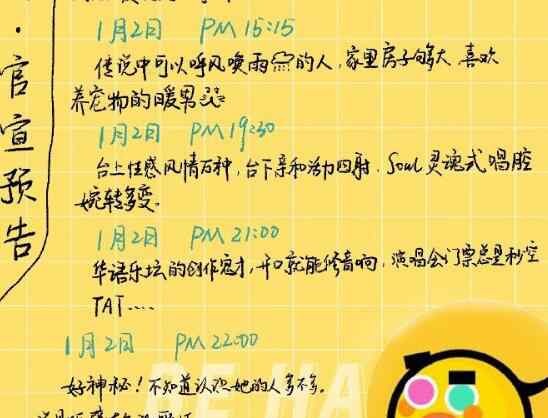 ·官宣预告
1月2日 PM 15:15
传说中可以呼风唤雨🌧的人，家里房子够大，喜欢
养宠物的暖男
1月2日 PM 19:30
台上性感风情万种，台下亲和活力四射，Soul灵魂式唱腔
婉转多变。
1月2日 PM 21:00
华语乐坛的创作鬼才，开口就能修音响，演唱会门票总是秒空
TAT....
1月2日 PM 22:00
好神秘！不知道认识她的人多不多。